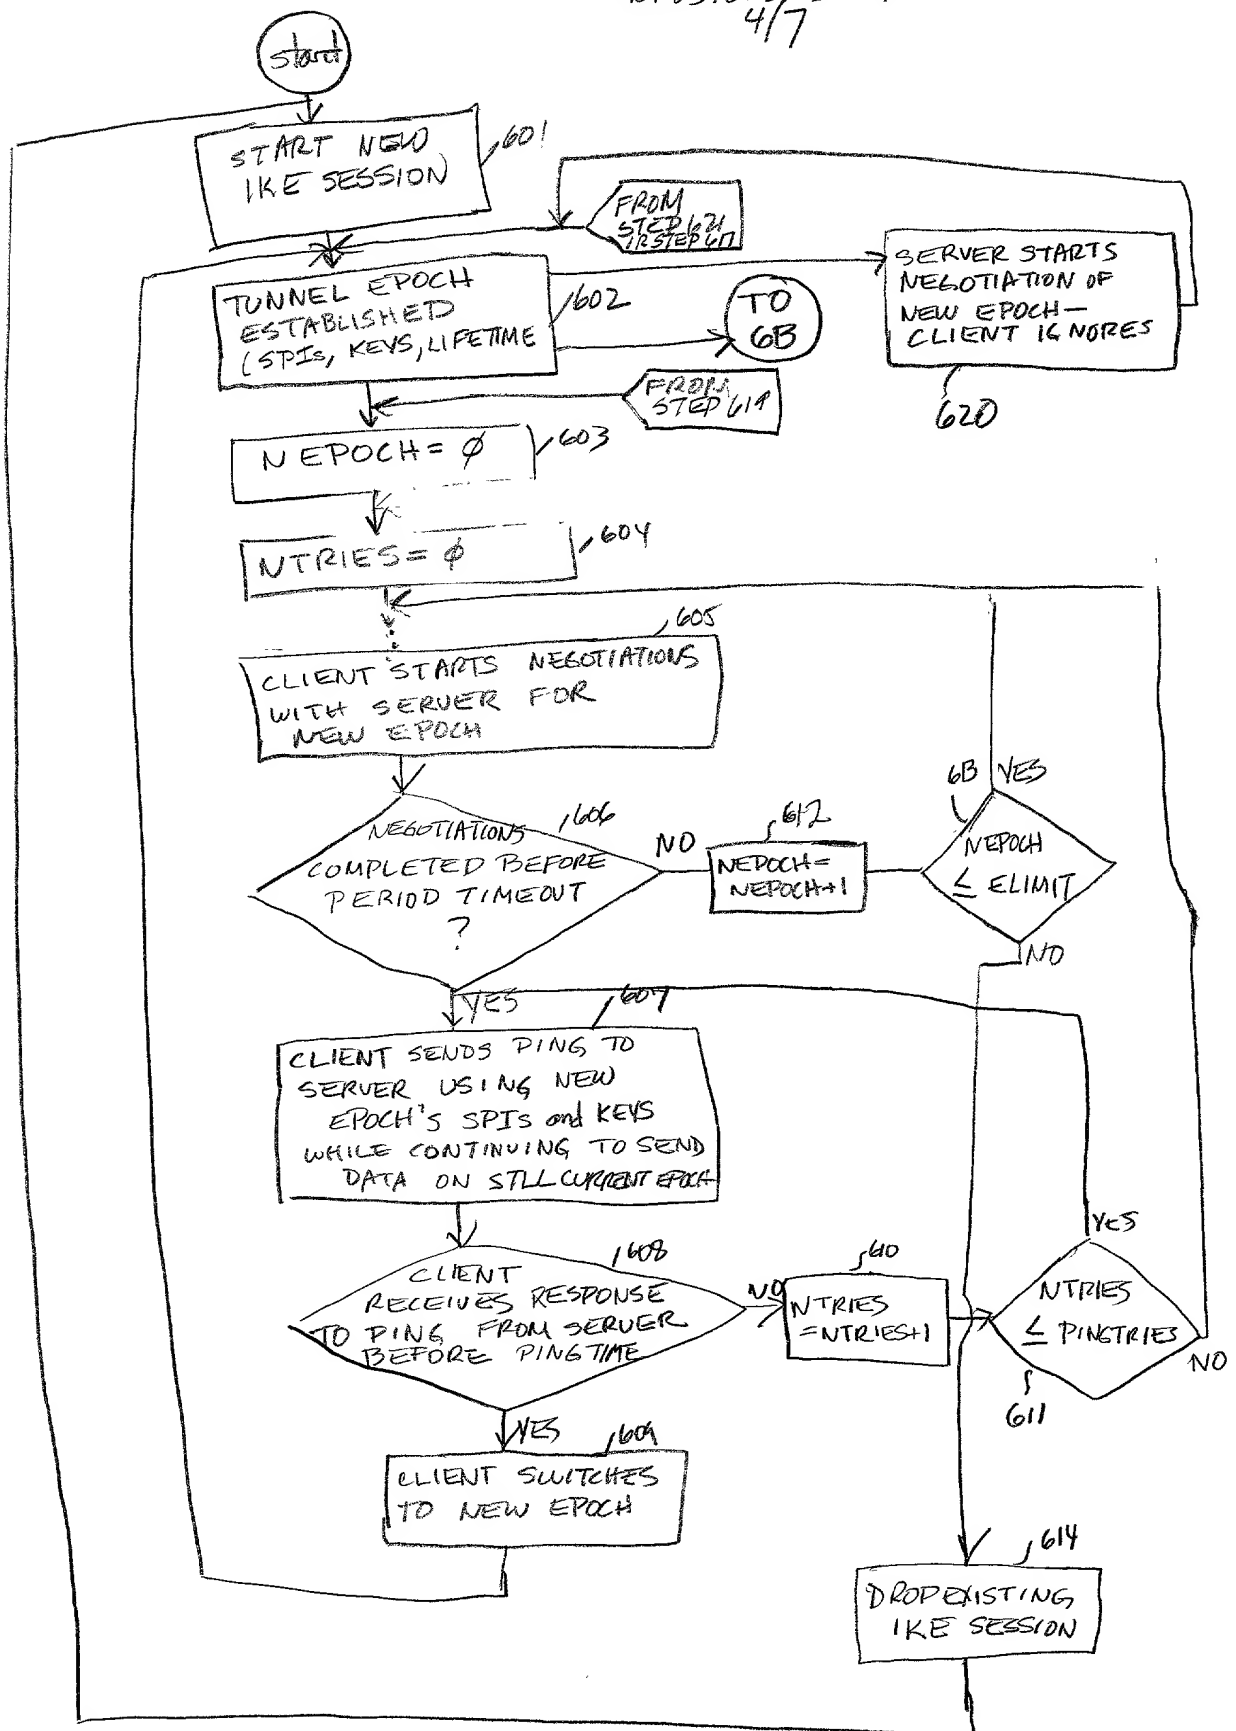 4/7
start
START NEW
IKE SESSION
601
FROM
STEP 621
TUNNEL EPOCH
ESTABLISHED
(SPIs, KEYS, LIFETIME
602
TO
6B
SERVER STARTS
NEGOTIATION OF
NEW EPOCH—
CLIENT IGNORES
620
FROM
STEP 619
N EPOCH = ϕ
603
NTRIES = ϕ
604
605
CLIENT STARTS NEGOTIATIONS
WITH SERVER FOR
NEW EPOCH
NEGOTIATIONS
COMPLETED BEFORE
PERIOD TIMEOUT
?
606
NO
612
NEPOCH =
NEPOCH+1
6B
YES
NEPOCH
≤ ELIMIT
NO
YES
607
CLIENT SENDS PING TO
SERVER USING NEW
EPOCH'S SPIs and KEYS
WHILE CONTINUING TO SEND
DATA ON STLL CURRENT EPOCH
608
CLIENT
RECEIVES RESPONSE
TO PING FROM SERVER
BEFORE PINGTIME
NO
610
NTRIES
=NTRIES+1
YES
NTRIES
≤ PINGTRIES
NO
611
YES
609
CLIENT SWITCHES
TO NEW EPOCH
614
DROP EXISTING
IKE SESSION